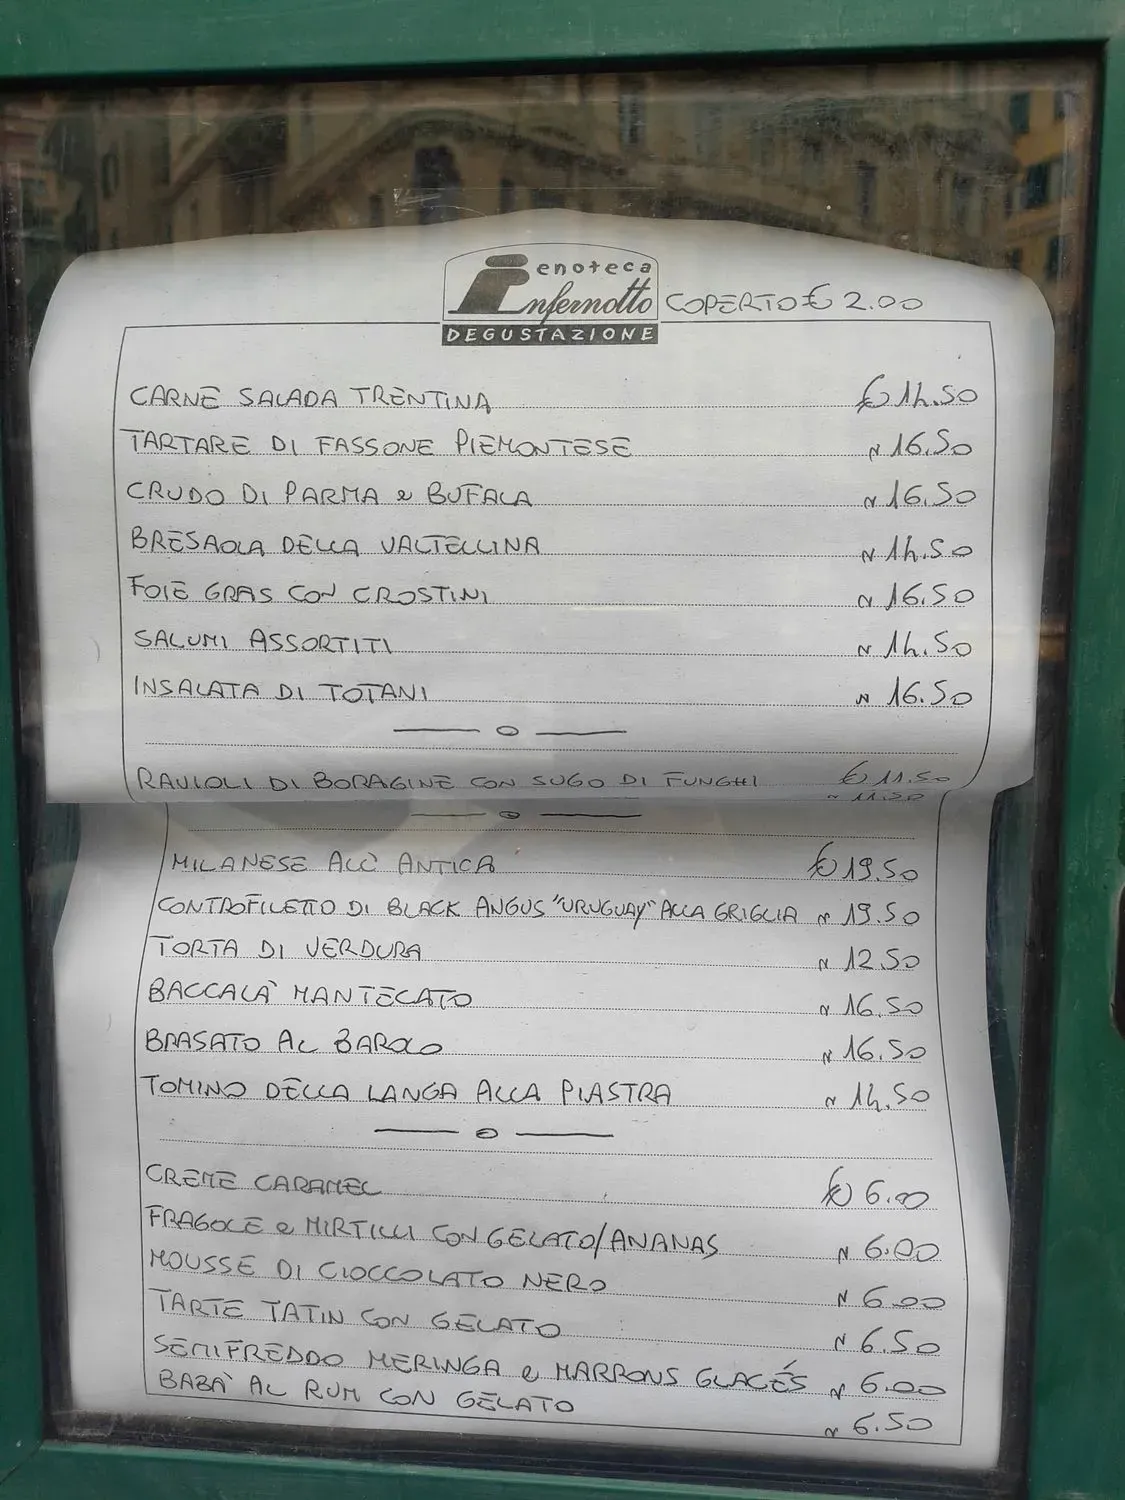 enoteca
Infernotto COPERTO € 2.00
DEGUSTAZIONE
CARNE SALADA TRENTINA € 14.50
TARTARE DI FASSONE PIEMONTESE " 16.50
CRUDO DI PARMA e BUFALA " 16.50
BRESAOLA DELLA VALTELLINA " 14.50
FOIE GRAS CON CROSTINI " 16.50
SALUMI ASSORTITI " 14.50
INSALATA DI TOTANI " 16.50
RAVIOLI DI BORAGINE CON SUGO DI FUNGHI € 11.50
" 11.50
MILANESE ALL'ANTICA € 19.50
CONTROFILETTO DI BLACK ANGUS "URUGUAY" ALLA GRIGLIA " 19.50
TORTA DI VERDURA " 12.50
BACCALA' MANTECATO " 16.50
BRASATO AL BAROLO " 16.50
TOMINO DELLA LANGA ALLA PIASTRA " 14.50
CREME CARAMEL € 6.00
FRAGOLE e MIRTILLI CON GELATO/ANANAS " 6.00
MOUSSE DI CIOCCOLATO NERO " 6.00
TARTE TATIN CON GELATO " 6.50
SEMIFREDDO MERINGA e MARRONS GLACÉS " 6.00
BABA' AL RUM CON GELATO " 6.50